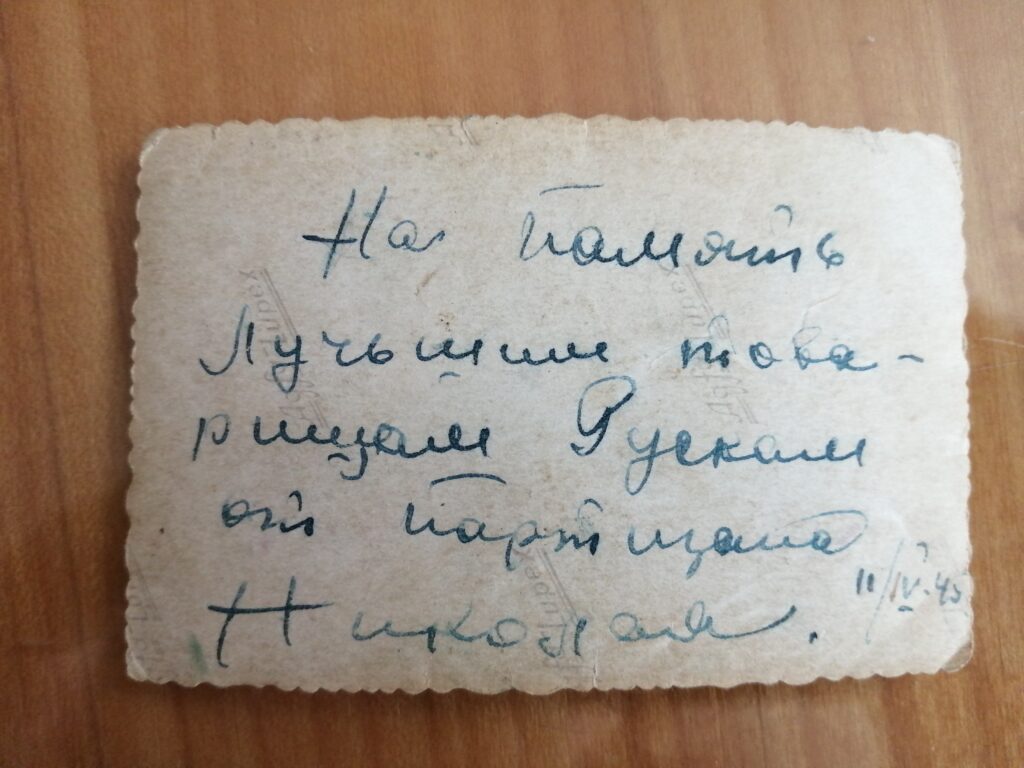 На память
Лучьшим това-
рищам Рускам
от партизана
Николая.
11/IV-45